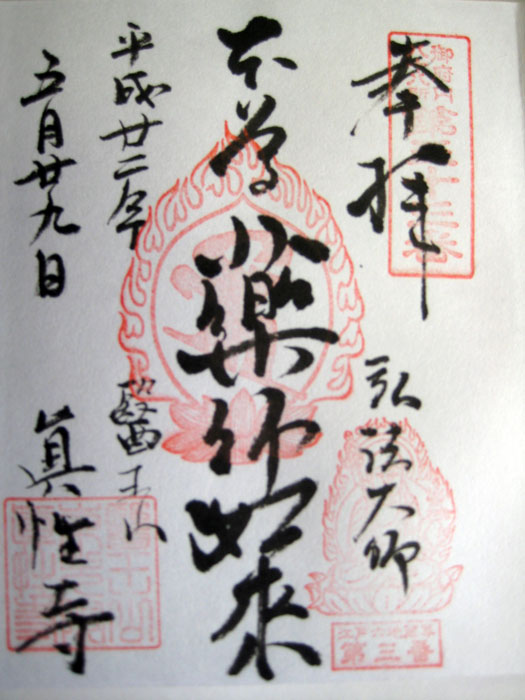 奉拝
弘法大師
第三番
本尊
薬師如来
平成廿二年
五月廿九日
醫王山
眞性寺